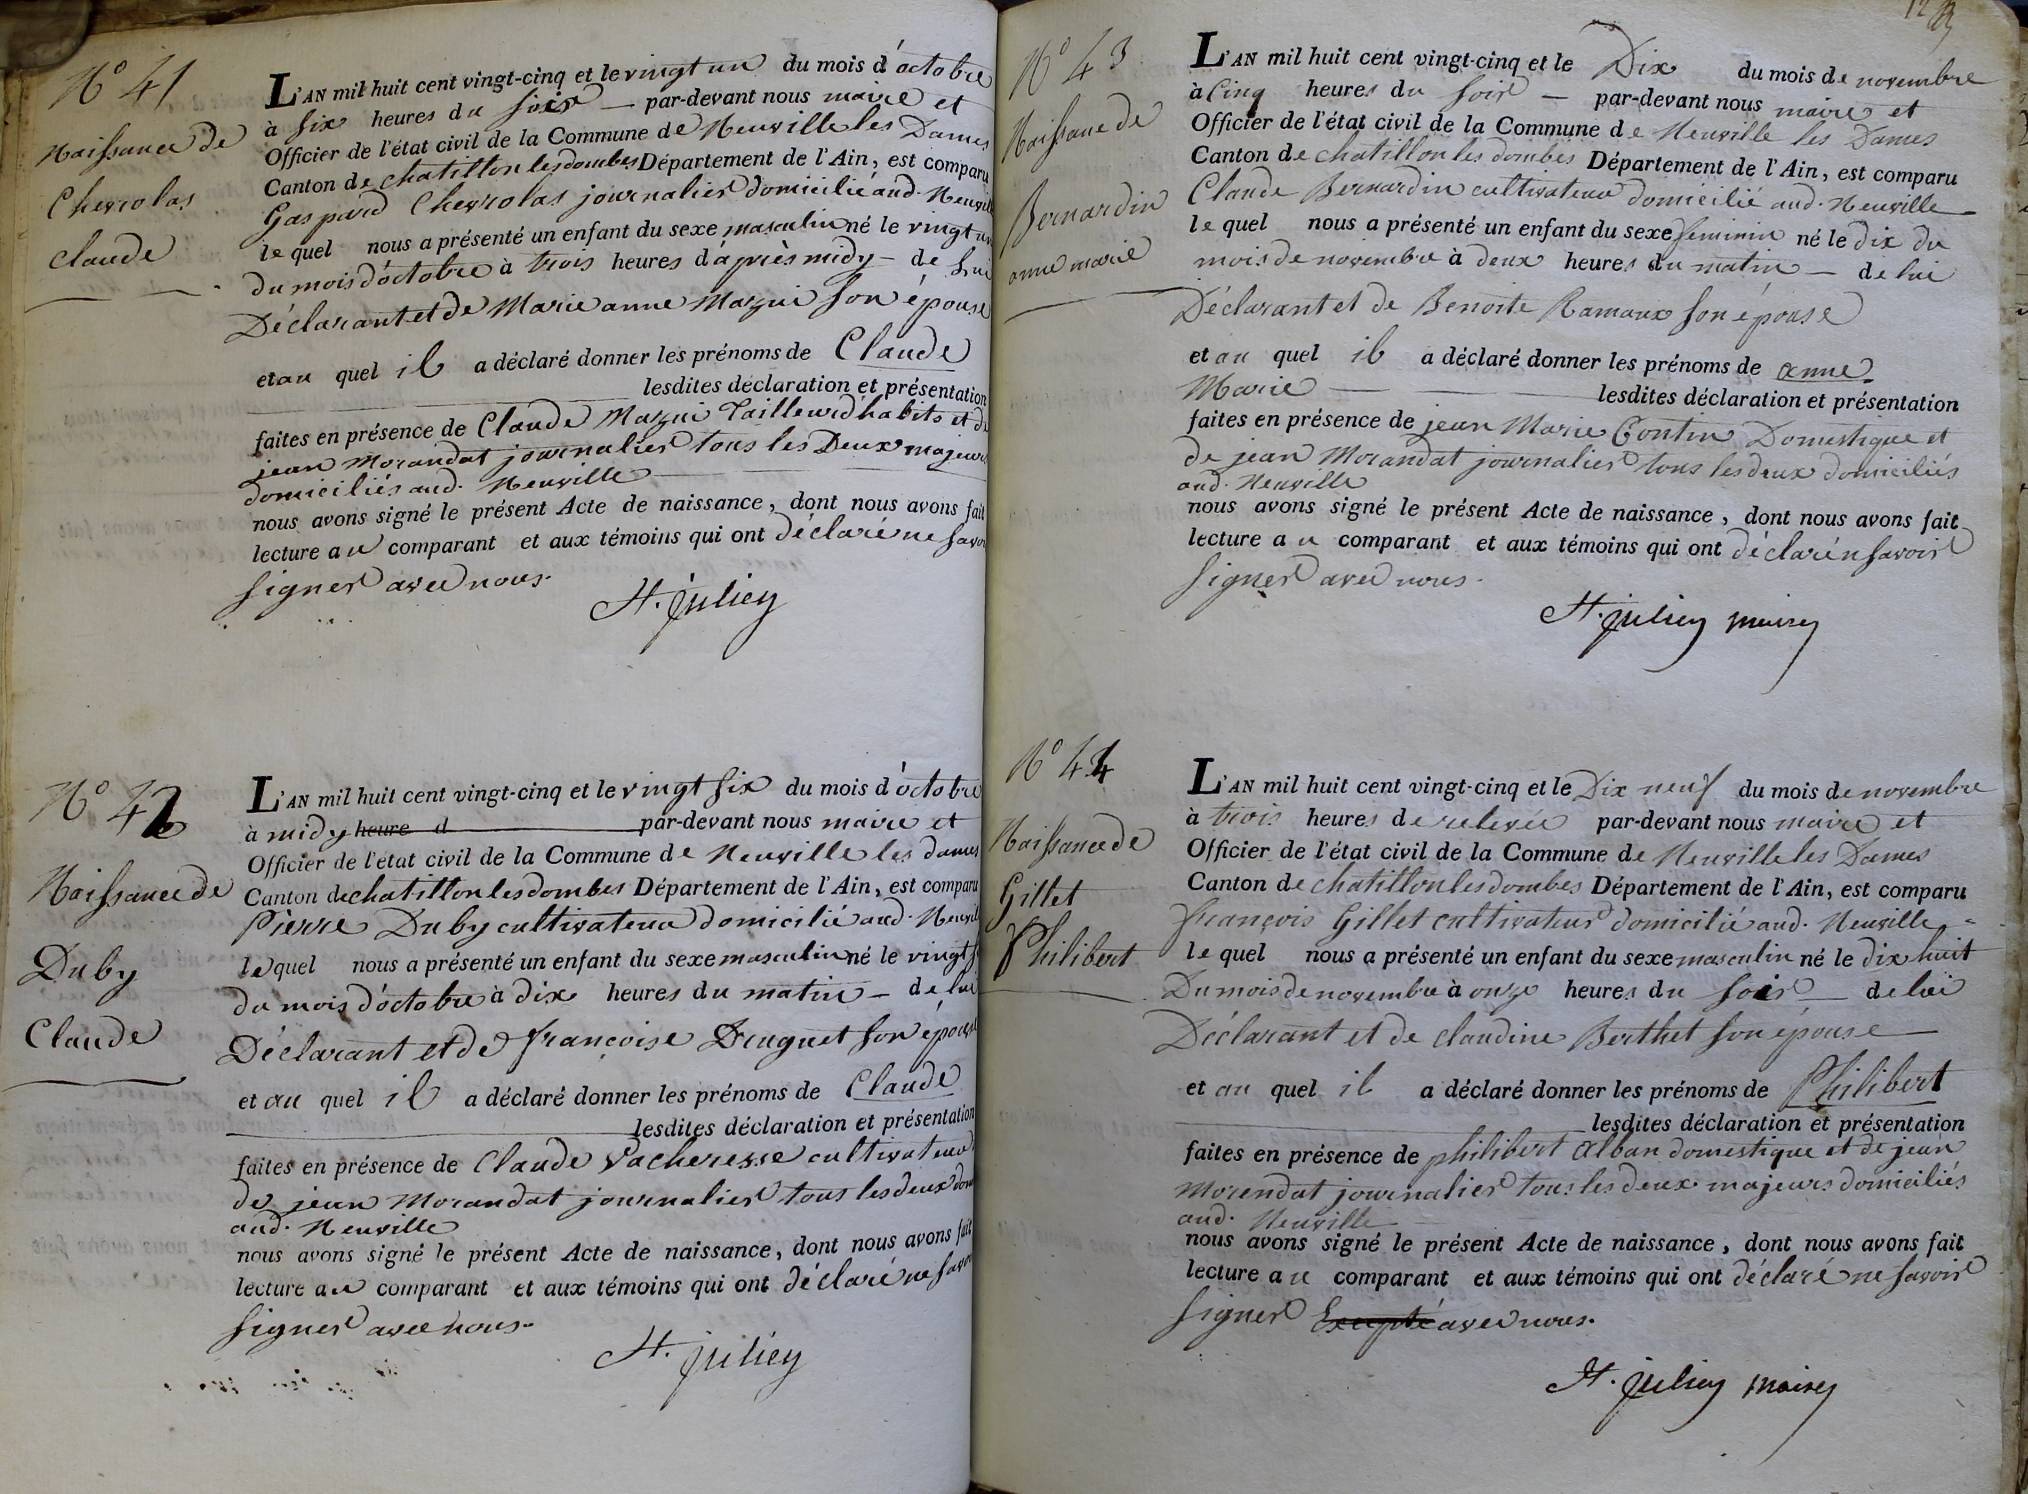 N° 41
Naissance de
Chevrolas
Claude
L'AN mil huit cent vingt-cinq et le vingt un du mois d'octobre
à six heures du soir — par-devant nous maire et
Officier de l'état civil de la Commune de Neuville les Dames
Canton de chatillon les dombes Département de l'Ain, est comparu
Gaspard Chevrolas journalier domicilié aud. Neuville
le quel nous a présenté un enfant du sexe masculin né le vingt un
du mois d'octobre à trois heures d'après midy — de lui
Déclarant et de Marie anne Mazui son épouse
et au quel il a déclaré donner les prénoms de Claude
lesdites déclaration et présentation
faites en présence de Claude Mazui Tailleur d'habits et de
jean Morandat journalier tous les Deux majeurs
domiciliés aud. Neuville
nous avons signé le présent Acte de naissance, dont nous avons fait
lecture au comparant et aux témoins qui ont déclaré ne savoir
signer avec nous.
St. julien
N° 42
Naissance de
Duby
Claude
L'AN mil huit cent vingt-cinq et le vingt six du mois d'octobre
à midy heure d par-devant nous maire et
Officier de l'état civil de la Commune de Neuville les dames
Canton de chatillon les dombes Département de l'Ain, est comparu
Pierre Duby cultivateur domicilié aud. Neuville
le quel nous a présenté un enfant du sexe masculin né le vingt
du mois d'octobre à dix heures du matin — de lui
Déclarant et de françoise Druguet son épouse
et au quel il a déclaré donner les prénoms de Claude
lesdites déclaration et présentation
faites en présence de Claude Vacheresse cultivateur
de jean Morandat journalier tous les deux dom
aud. Neuville
nous avons signé le présent Acte de naissance, dont nous avons fait
lecture au comparant et aux témoins qui ont déclaré ne savoir
signer avec nous.
St. julien
N° 43
Naissance de
Bernardin
anne marie
L'AN mil huit cent vingt-cinq et le Dix du mois de novembre
à Cinq heures du soir — par-devant nous maire et
Officier de l'état civil de la Commune de Neuville les Dames
Canton de chatillon les dombes Département de l'Ain, est comparu
Claude Bernardin cultivateur domicilié aud. Neuville
le quel nous a présenté un enfant du sexe feminin né le dix du
mois de novembre à deux heures du matin — de lui
Déclarant et de Benoite Ramaux son épouse
et au quel il a déclaré donner les prénoms de anne
Marie lesdites déclaration et présentation
faites en présence de jean Marie Contin Domestique et
de jean Morandat journalier tous les deux domiciliés
aud. Neuville
nous avons signé le présent Acte de naissance, dont nous avons fait
lecture au comparant et aux témoins qui ont déclaré n savoir
signer avec nous.
St. julien maire
N° 44
Naissance de
Gillet
Philibert
L'AN mil huit cent vingt-cinq et le Dix neuf du mois de novembre
à trois heures de relevée par-devant nous maire et
Officier de l'état civil de la Commune de Neuville les Dames
Canton de chatillon les dombes Département de l'Ain, est comparu
françois Gillet cultivateur domicilié aud. Neuville
le quel nous a présenté un enfant du sexe masculin né le dix huit
Du mois de novembre à onze heures du soir — de lui
Déclarant et de claudine Berthet son épouse
et au quel il a déclaré donner les prénoms de Philibert
lesdites déclaration et présentation
faites en présence de philibert alban domestique et de jean
Morendat journalier tous les deux majeurs domiciliés
aud. Neuville
nous avons signé le présent Acte de naissance, dont nous avons fait
lecture au comparant et aux témoins qui ont déclaré ne savoir
signer Excepté avec nous.
St. julien maire